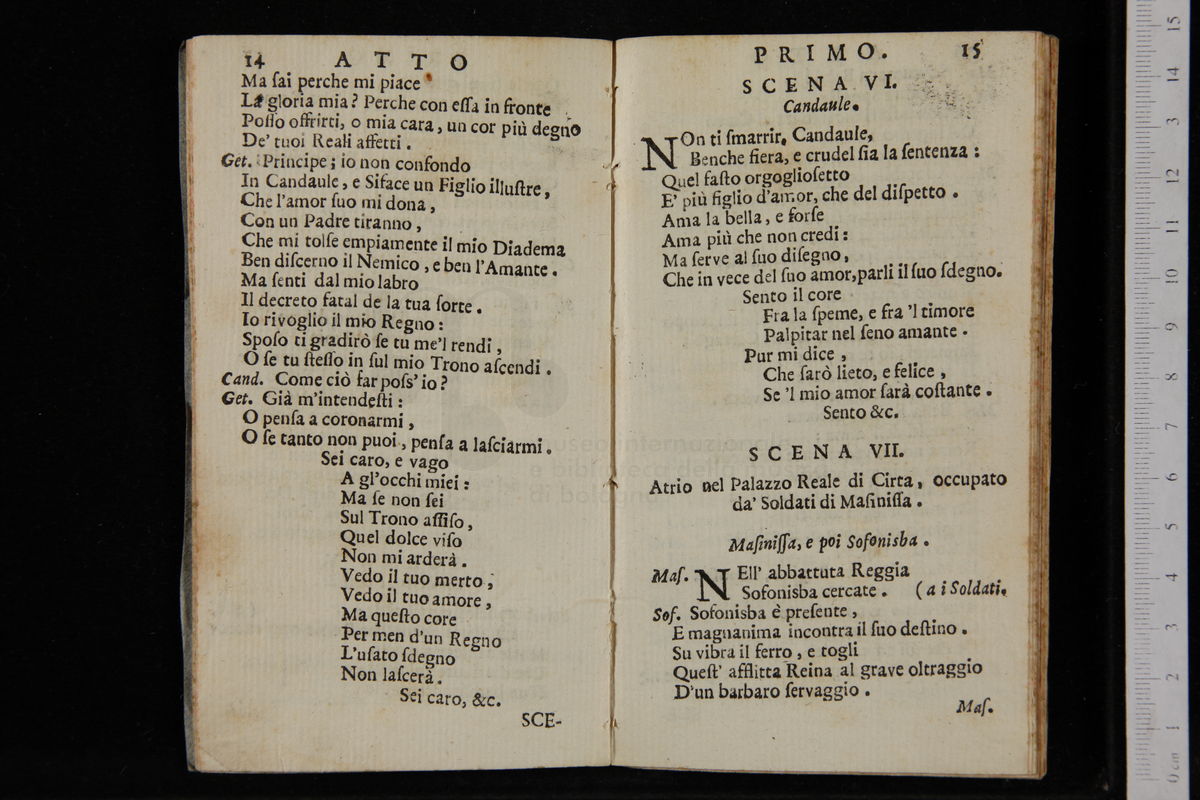 14 ATTO
Ma ſai perche mi piace
La gloria mia? Perche con eſſa in fronte
Poſſo offrirti, o mia cara, un cor più degno
De' tuoi Reali affetti.
Get. Principe; io non confondo
In Candaule, e Siface un Figlio illuſtre,
Che l'amor ſuo mi dona,
Con un Padre tiranno,
Che mi tolſe empiamente il mio Diadema
Ben diſcerno il Nemico, e ben l'Amante.
Ma ſenti dal mio labro
Il decreto fatal de la tua ſorte.
Io rivoglio il mio Regno:
Spoſo ti gradirò ſe tu me'l rendi,
O ſe tu ſteſſo in ſul mio Trono aſcendi.
Cand. Come ciò far poſs' io?
Get. Già m'intendeſti:
O penſa a coronarmi,
O ſe tanto non puoi, penſa a laſciarmi.
Sei caro, e vago
A gl'occhi miei:
Ma ſe non ſei
Sul Trono aſſiſo,
Quel dolce viſo
Non mi arderà.
Vedo il tuo merto,
Vedo il tuo amore,
Ma queſto core
Per men d'un Regno
L'uſato ſdegno
Non laſcerà.
Sei caro, &c.
SCE-
PRIMO. 15
SCENA VI.
Candaule.
NOn ti ſmarrir, Candaule,
Benche fiera, e crudel ſia la ſentenza:
Quel faſto orgoglioſetto
E' più figlio d'amor, che del diſpetto.
Ama la bella, e forſe
Ama più che non credi:
Ma ſerve al ſuo diſegno,
Che in vece del ſuo amor, parli il ſuo ſdegno.
Sento il core
Fra la ſpeme, e fra 'l timore
Palpitar nel ſeno amante.
Pur mi dice,
Che ſarò lieto, e felice,
Se 'l mio amor ſarà coſtante.
Sento &c.
SCENA VII.
Atrio nel Palazzo Reale di Cirta, occupato
da' Soldati di Maſiniſſa.
Maſiniſſa, e poi Sofonisba.
Maſ. NEll' abbattuta Reggia
Sofonisba cercate. (a i Soldati.
Sof. Sofonisba è preſente,
E magnanima incontra il ſuo deſtino.
Su vibra il ferro, e togli
Queſt' afflitta Reina al grave oltraggio
D'un barbaro ſervaggio.
Maſ.
museo internazionale
e biblioteca della musica
di bologna
0 cm 1 2 3 4 5 6 7 8 9 10 11 12 13 14 15